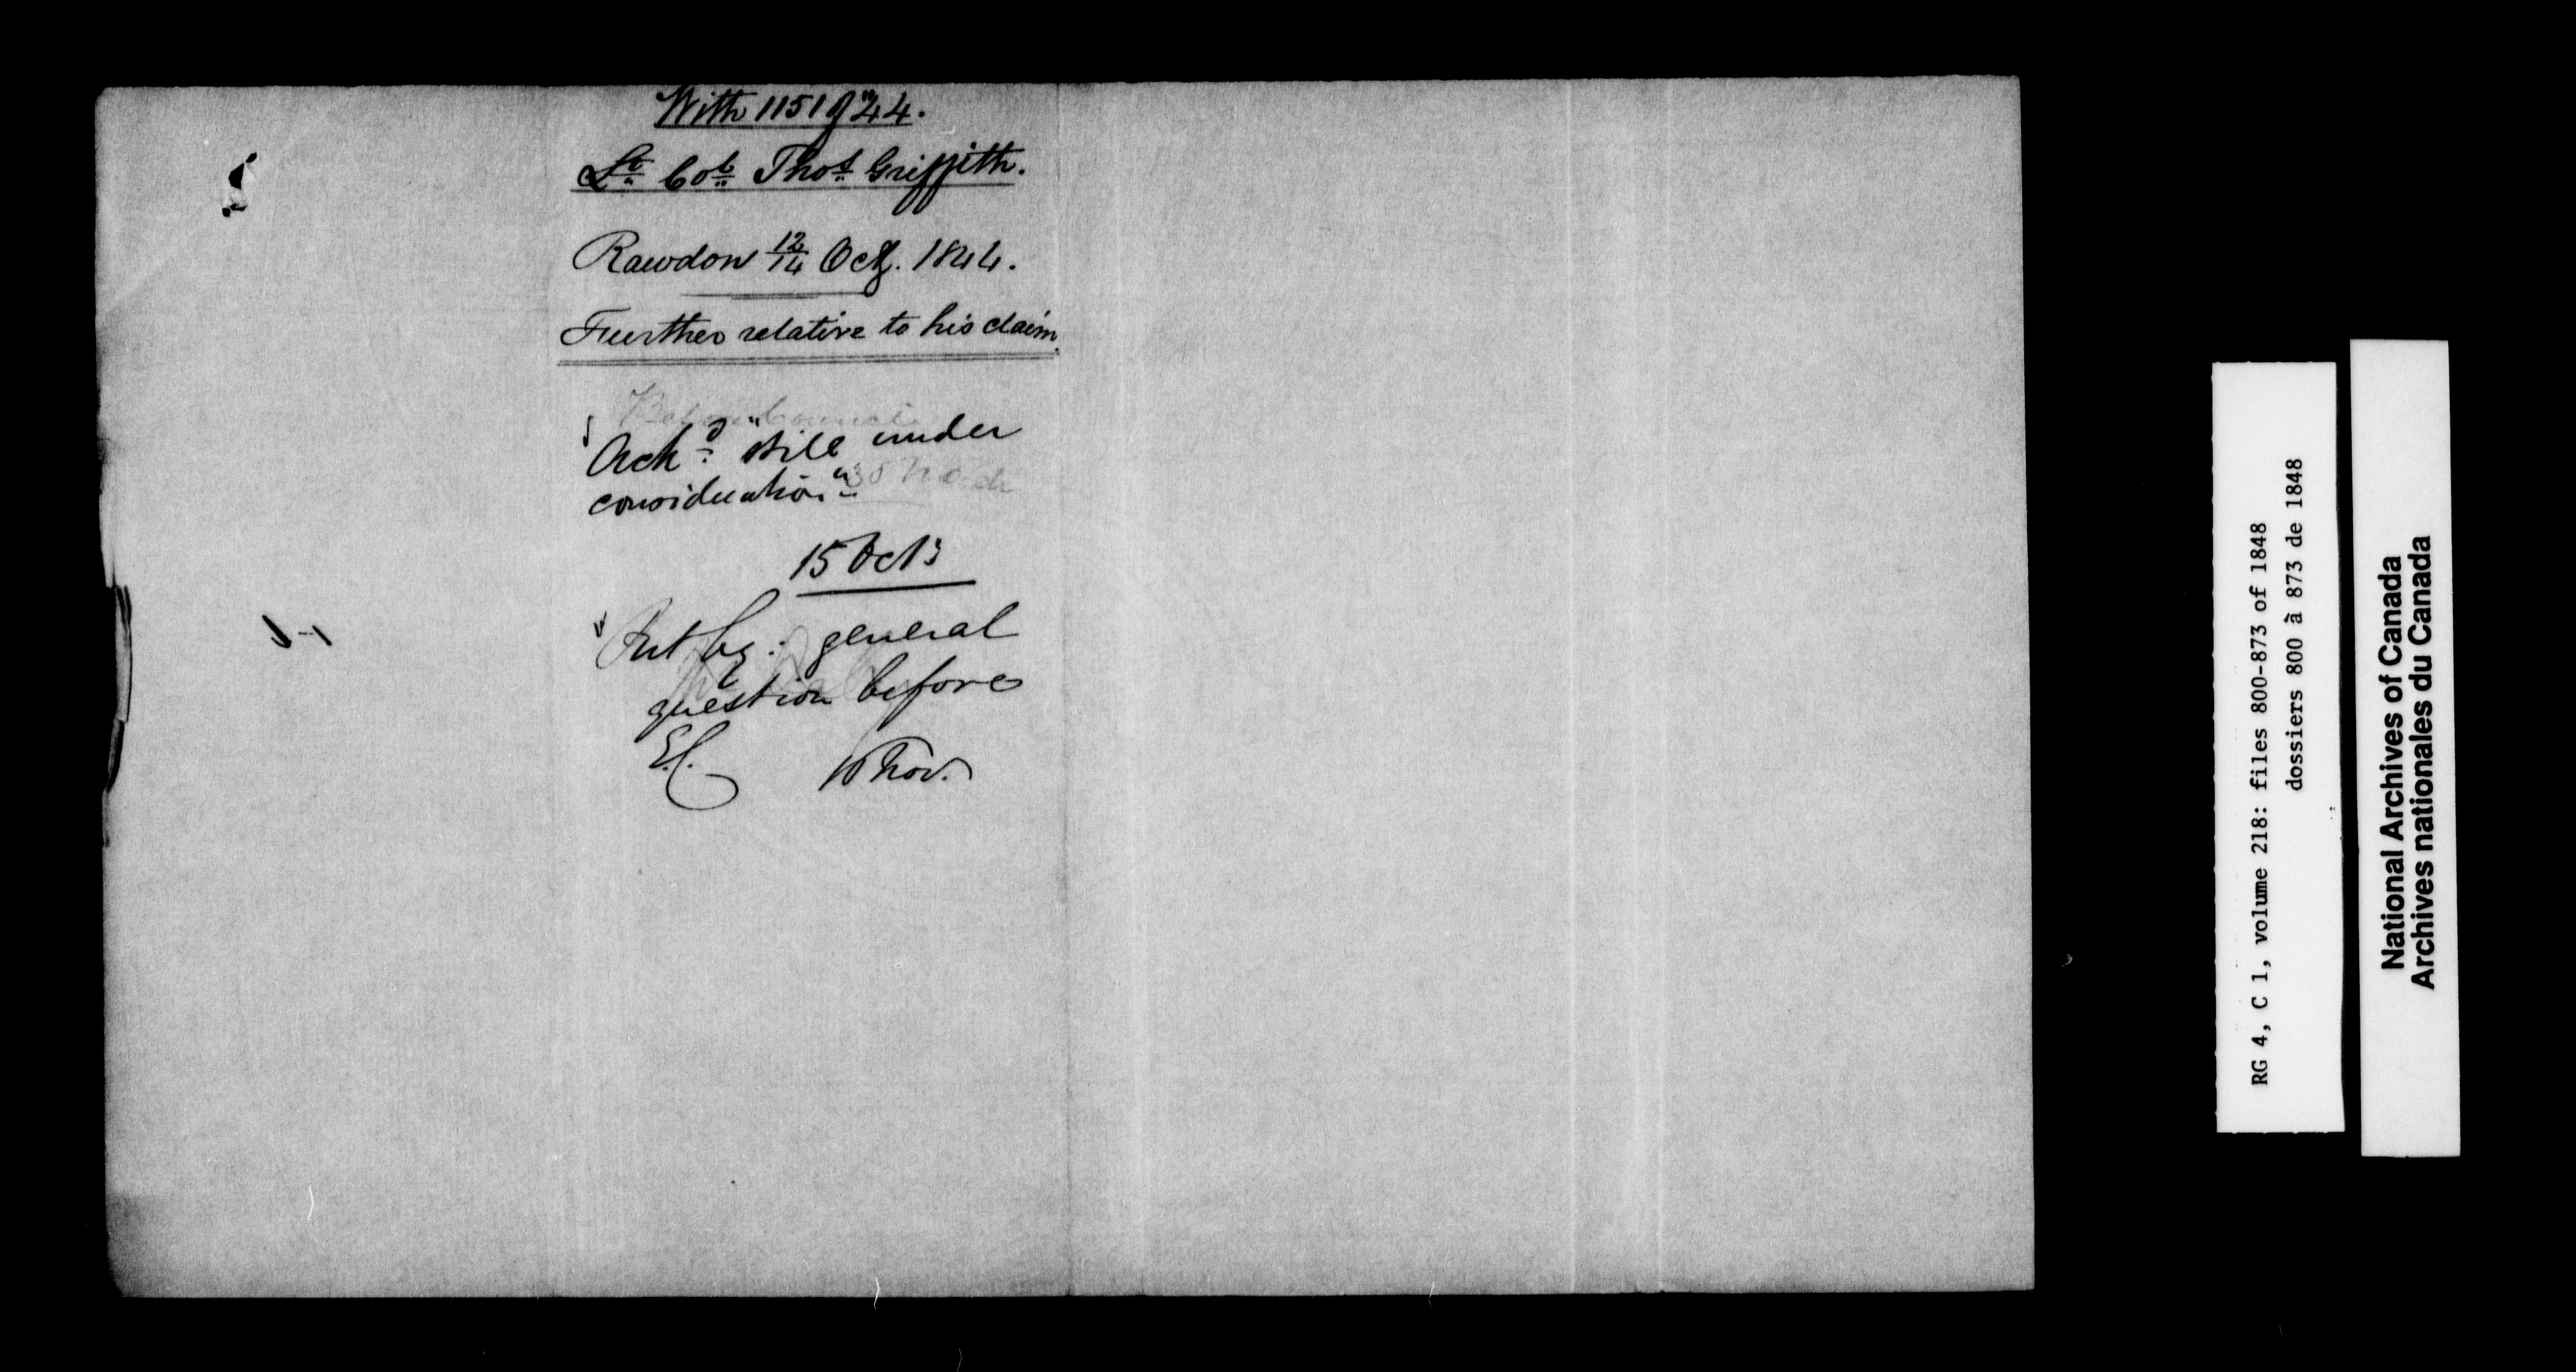 With 1151 of 44.
Lt. Col. Thos. Griffith.
Rawdon 12/14 Oct. 1844.
Further relative to his claim.
Before Council
Ackd. "still under
consideration"
15 Oct:
general
question before
E.C. 16 Nov.
RG 4, C 1, volume 218: files 800-873 of 1848
dossiers 800 à 873 de 1848
National Archives of Canada
Archives nationales du Canada